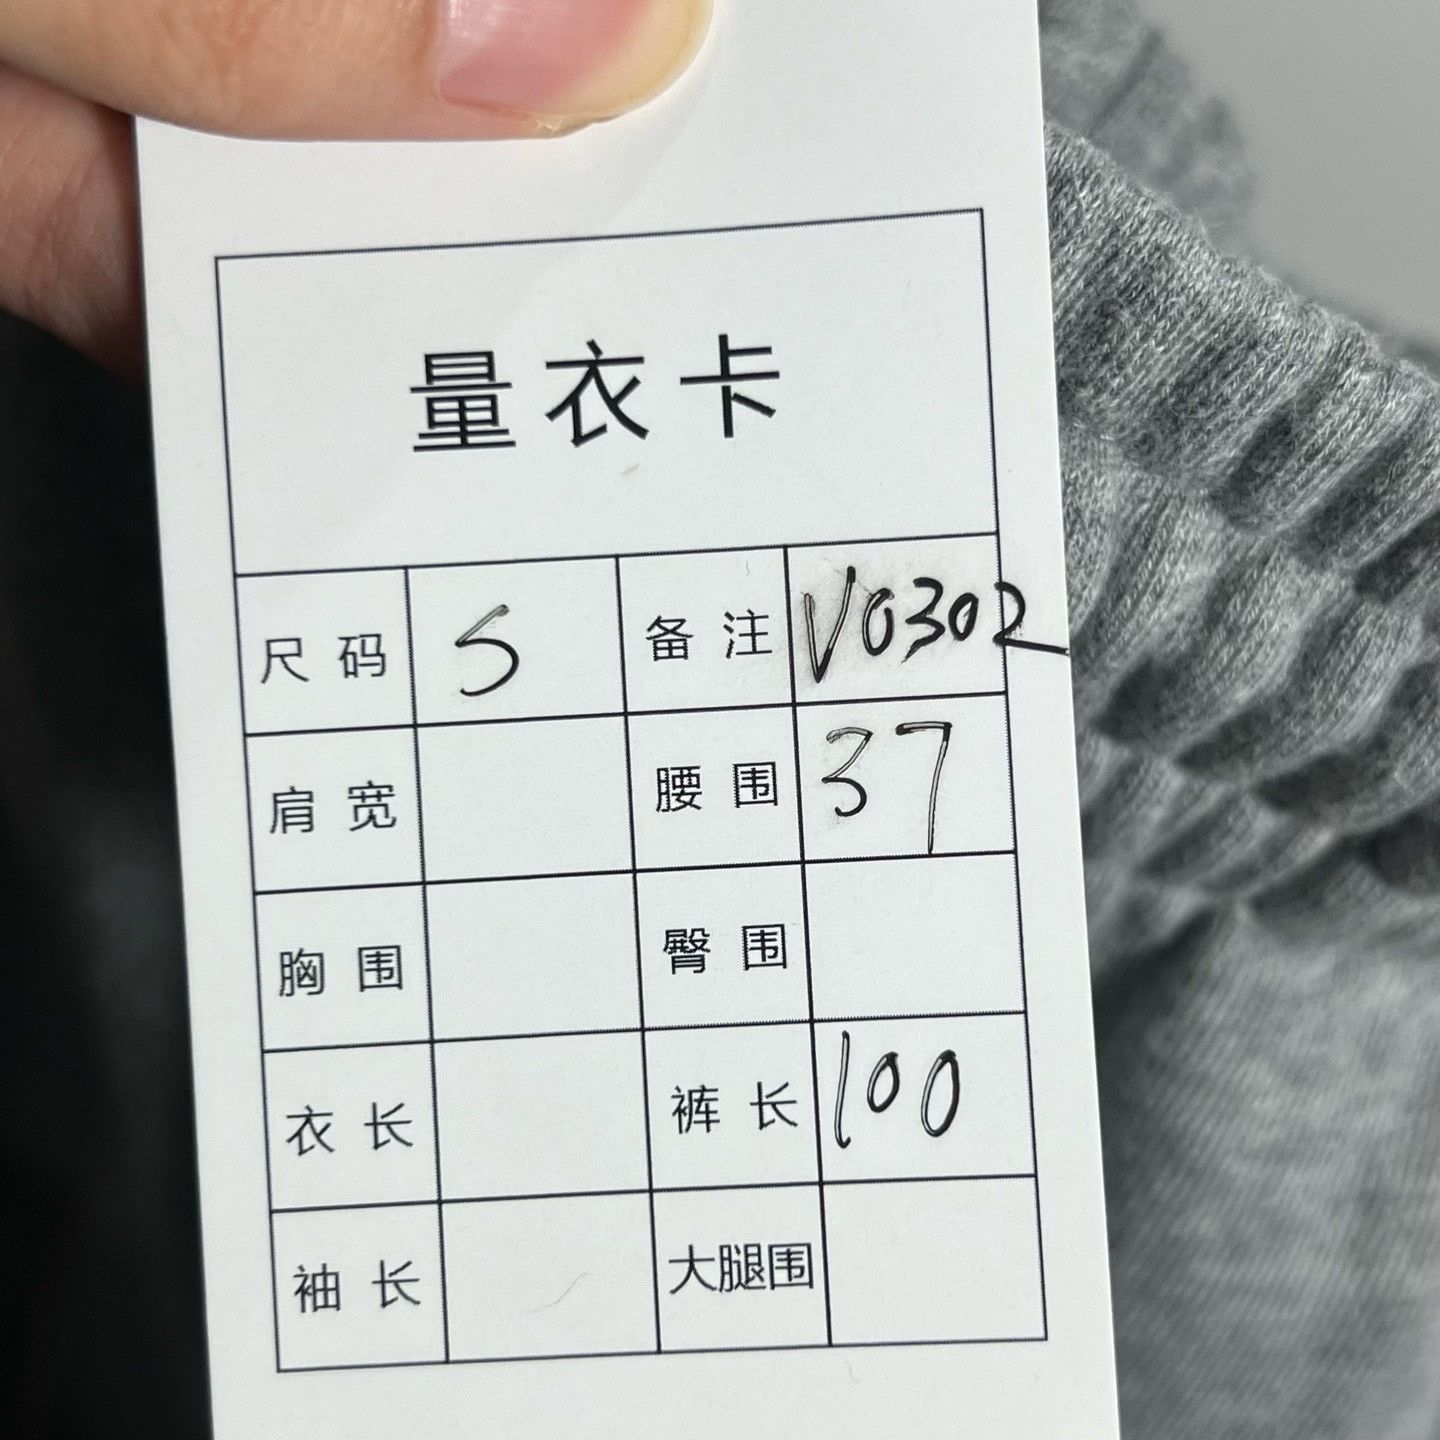 量衣卡
尺码 S 备注 V0302
肩宽 腰围 37
胸围 臀围
衣长 裤长 100
袖长 大腿围